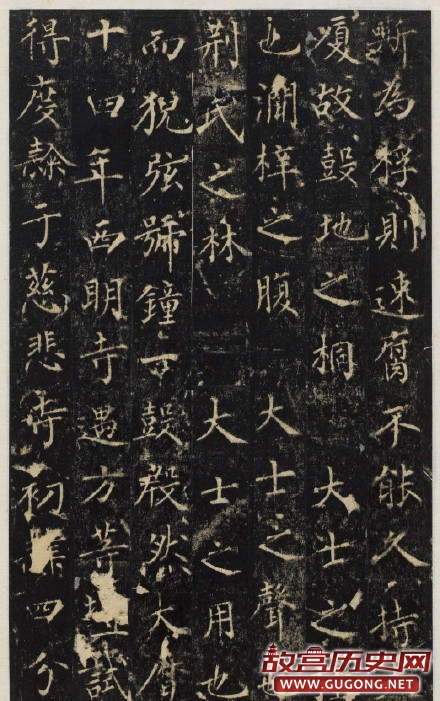 為桴則速腐不能久持
故鼓地之桐 大士之
也澗梓之腹 大士之聲
荆氏之林 大士之用也
而猊弦號鐘鼓殷然大
十四年西明寺遇方等試
得度隸于慈悲寺初四分
故宫历史网
WWW.GUGONG.NET